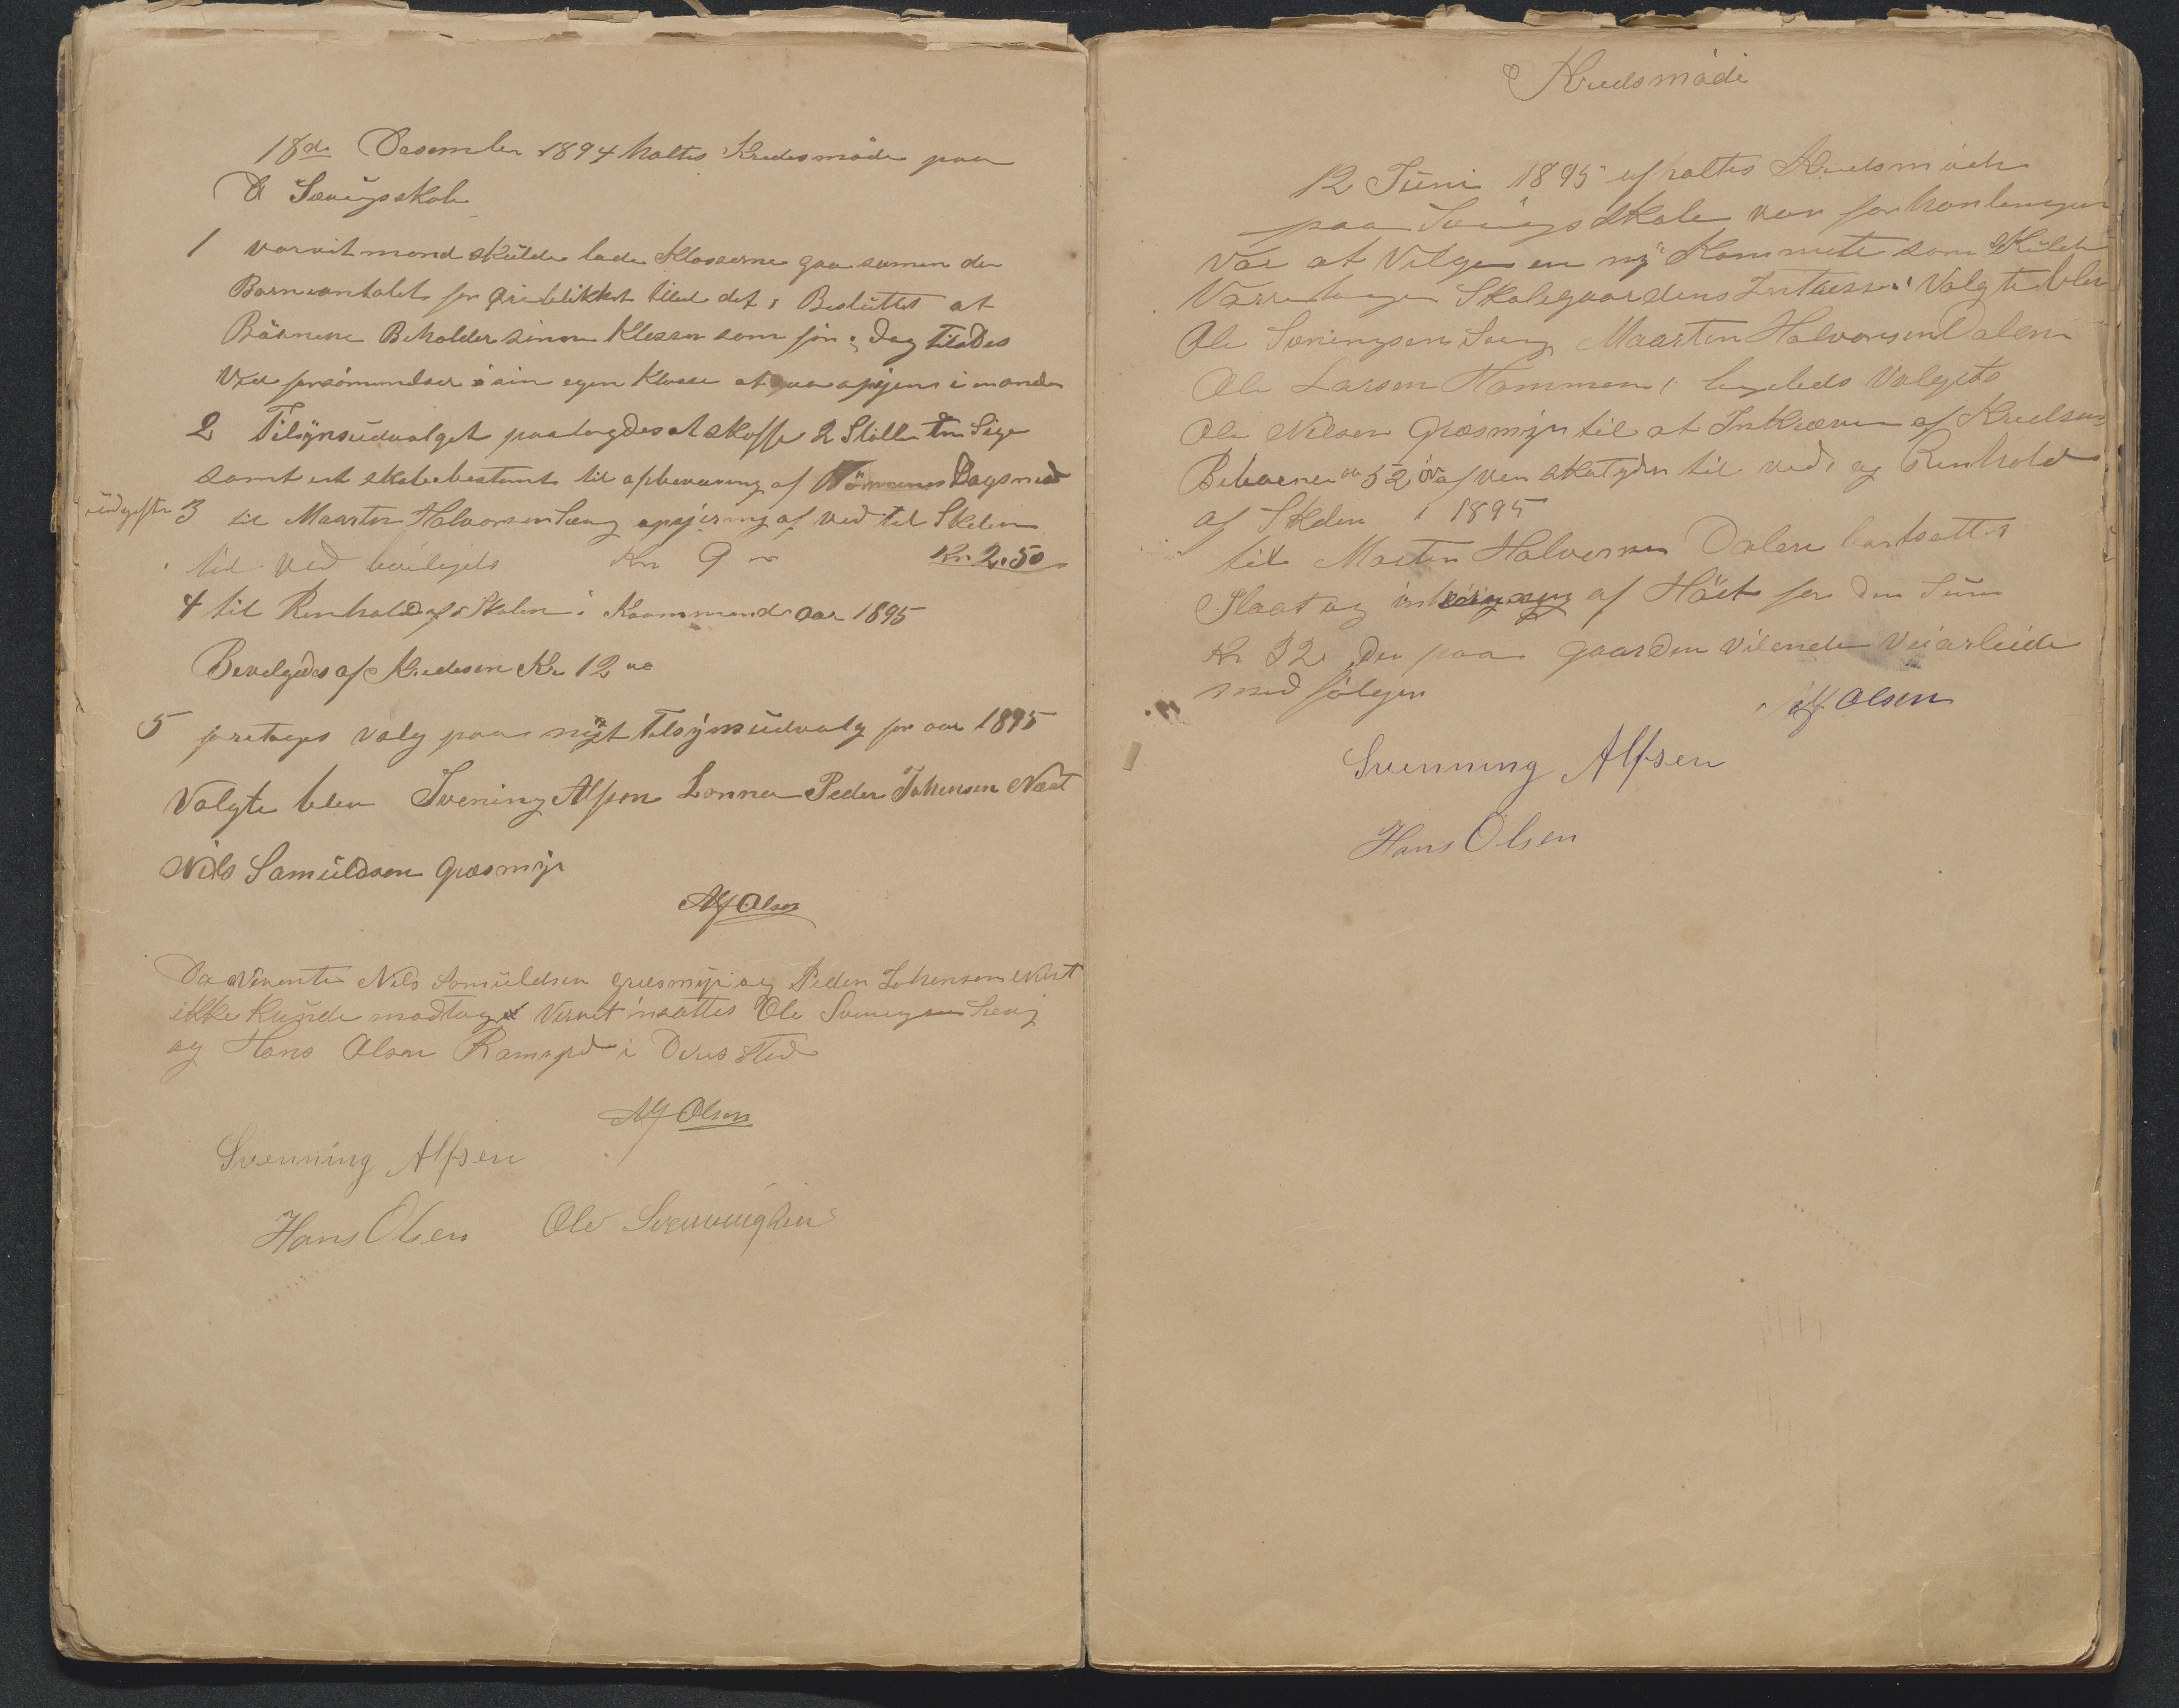 18de Desember 1894 holtes Kredsmöde paa
Sveinigs skole
1 vorvit mand skulde lade Klasserne gaa samen da
Barneantalet for Øieblikket tilod det, Besluttet at
Börnene Beholder sinne Klasser som för; Dog tilodes
Ved forsömmelser i sin egen Klasse at gaa opigjen i manden
2 Tilsynsudvalget paalagdes at skaffe 2 Stoller
samt et skab bestemt til opbevaring af Dagsmad
udgifter 3 til Maarten Halvorsen opgjöring af ved til Skolen
Kr. 2.50
til Ved beviliges Kr 9 -
4 til Renhold af Skolen i Kommende aar 1895
Bevelgedes af Kredsen Kr 12 00
5 foretoges valg paa nyt Tilsynsudvalg for aar 1895
Valgte blev Svening Alfsen Lonna Peder Johensen Næst
Nils Samuldsen Græsmyr
Alf Olsen
Da Nils Samuldsen Græsmyr og Peder Johensen Næst
ikke kunde modtage Vervet insattes Ole Svenigsen
og Hans Olsen i Deres Sted
Alf Olsen
Svenning Alfsen
Hans Olsen Ole Svenningsen
Kredsmöde
12 Juni 1895 afholtes Kredsmöde
paa Svenigs Skole vor forhanlingen
Var at Velge en ny Kommete som Skulde
Varetage Skolegaardens Intresser Valgte blev
Ole Sveningsen Maarten Halvorsen Dalen
Ole Larsen Hammen, ligeledes Valgtes
Ole Nilsen Græsmyr til at Inkræve af Kredsens
Beboere 52 öre af ver skatyder til ved, og Renhold
af Skolen i 1895
til Marten Halvorsen Dalen bortsattes
Slaat og inkjöring af Höet for den Sum
Kr 32 Den paa Gaarden vilende Veiarbeide
med fölger
Alf Olsen
Svenning Alfsen
Hans Olsen